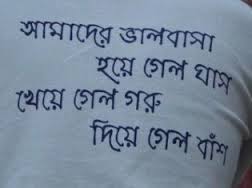 আমাদের ভালবাসা
হয়ে গেল ঘাস
খেয়ে গেল গরু
দিয়ে গেল বাঁশ